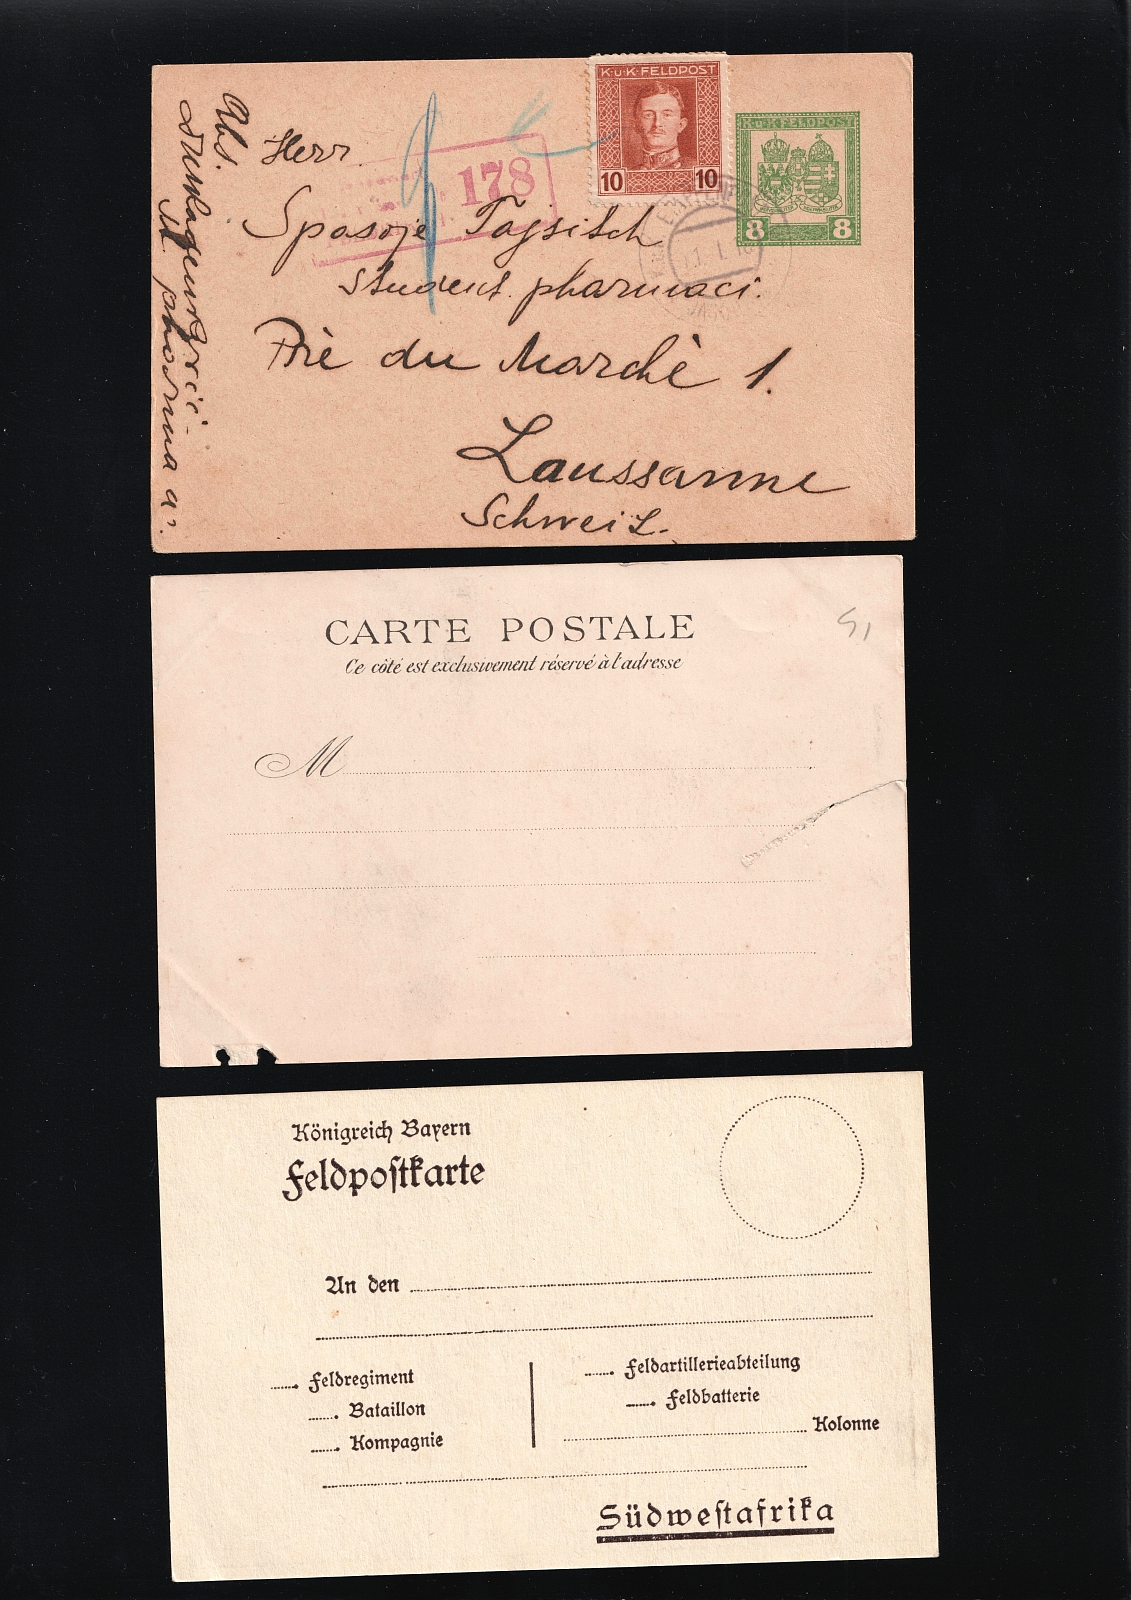 K·u·K·FELDPOST
10 10
K.u.K.FELDPOST
8 8
178
Herr
Sposoje Tajsitch
student pharmaci.
Pré du Marchè 1.
Laussanne
Schweiz.
Abs.
CARTE POSTALE
Ce côté est exclusivement réservé à l'adresse
M
Königreich Bayern
Feldpostkarte
An den
Feldregiment
Bataillon
Kompagnie
Feldartillerieabteilung
Feldbatterie
Kolonne
Südwestafrika